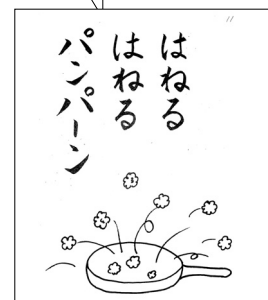 はねる
はねる
パンパーン